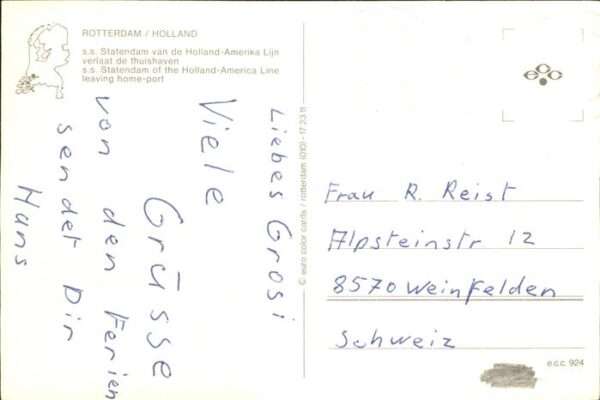 ROTTERDAM / HOLLAND
s.s. Statendam van de Holland-Amerika Lijn
verlaat de thuishaven
s.s. Statendam of the Holland-America Line
leaving home-port
Liebes Grosi
Viele
Grüsse
von den Ferien
sendet Dir
Hans
© euro color cards / rotterdam (010) - 17 33 11
ecc
Frau R. Reist
Alpsteinstr 12
8570 Weinfelden
Schweiz
ecc 924